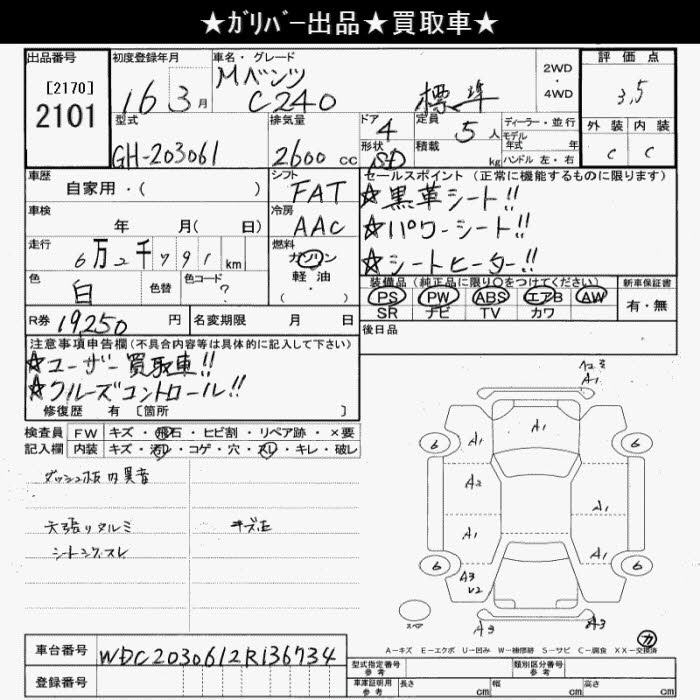 ★ｶﾞﾘﾊﾞｰ出品★買取車★
出品番号 初度登録年月 車名・グレード 2WD 評価点
[2170] Mベンツ
2101 16 3月 C240 標準 ・4WD 3,5
型式 排気量 ドア 定員 ディーラー・並行 外装 内装
4 5人 モデル年式 年
GH-203061 2600cc 形状 SD 積載 kg ハンドル 左・右 C C
車歴 シフト セールスポイント(正常に機能するものに限ります)
自家用・( ) FAT ☆黒革シート!!
車検 冷房 ☆パワーシート!!
年 月( 日) AAC ☆シートヒーター!!
走行 6万2千791km 燃料 ガソリン
軽油
・
( )
色 白 色替 色コード ?
装備品(純正品に限り○をつけてください) 新車保証書
PS PW ABS エアB AW 有・無
SR ナビ TV カワ
R券 19250円 名変期限 月 日 後日品
注意事項申告欄(不具合内容等は具体的に記入して下さい)
☆ユーザー買取車!!
☆クルーズコントロール!!
修復歴 有 [箇所 ]
検査員 FW キズ・飛石・ヒビ割・リペア跡・×要
記入欄 内装 キズ・汚レ・コゲ・穴・スレ・キレ・破レ
ダッシュ板内異音
天張りタルミ キズ正
シートシグスレ
A1
6 A1 A1 6
A2 A1
A1 A1
6 A3 V2 6
スペア A3 A3
カ
A－キズ E－エクボ U－凹み W－補修跡 S－サビ C－腐食 XX－交換済
車台番号 WDC2030612R136734
登録番号
型式指定番号 参考 類別区分番号 参考
車庫証明用 参考 長さ cm 幅 cm 高さ cm